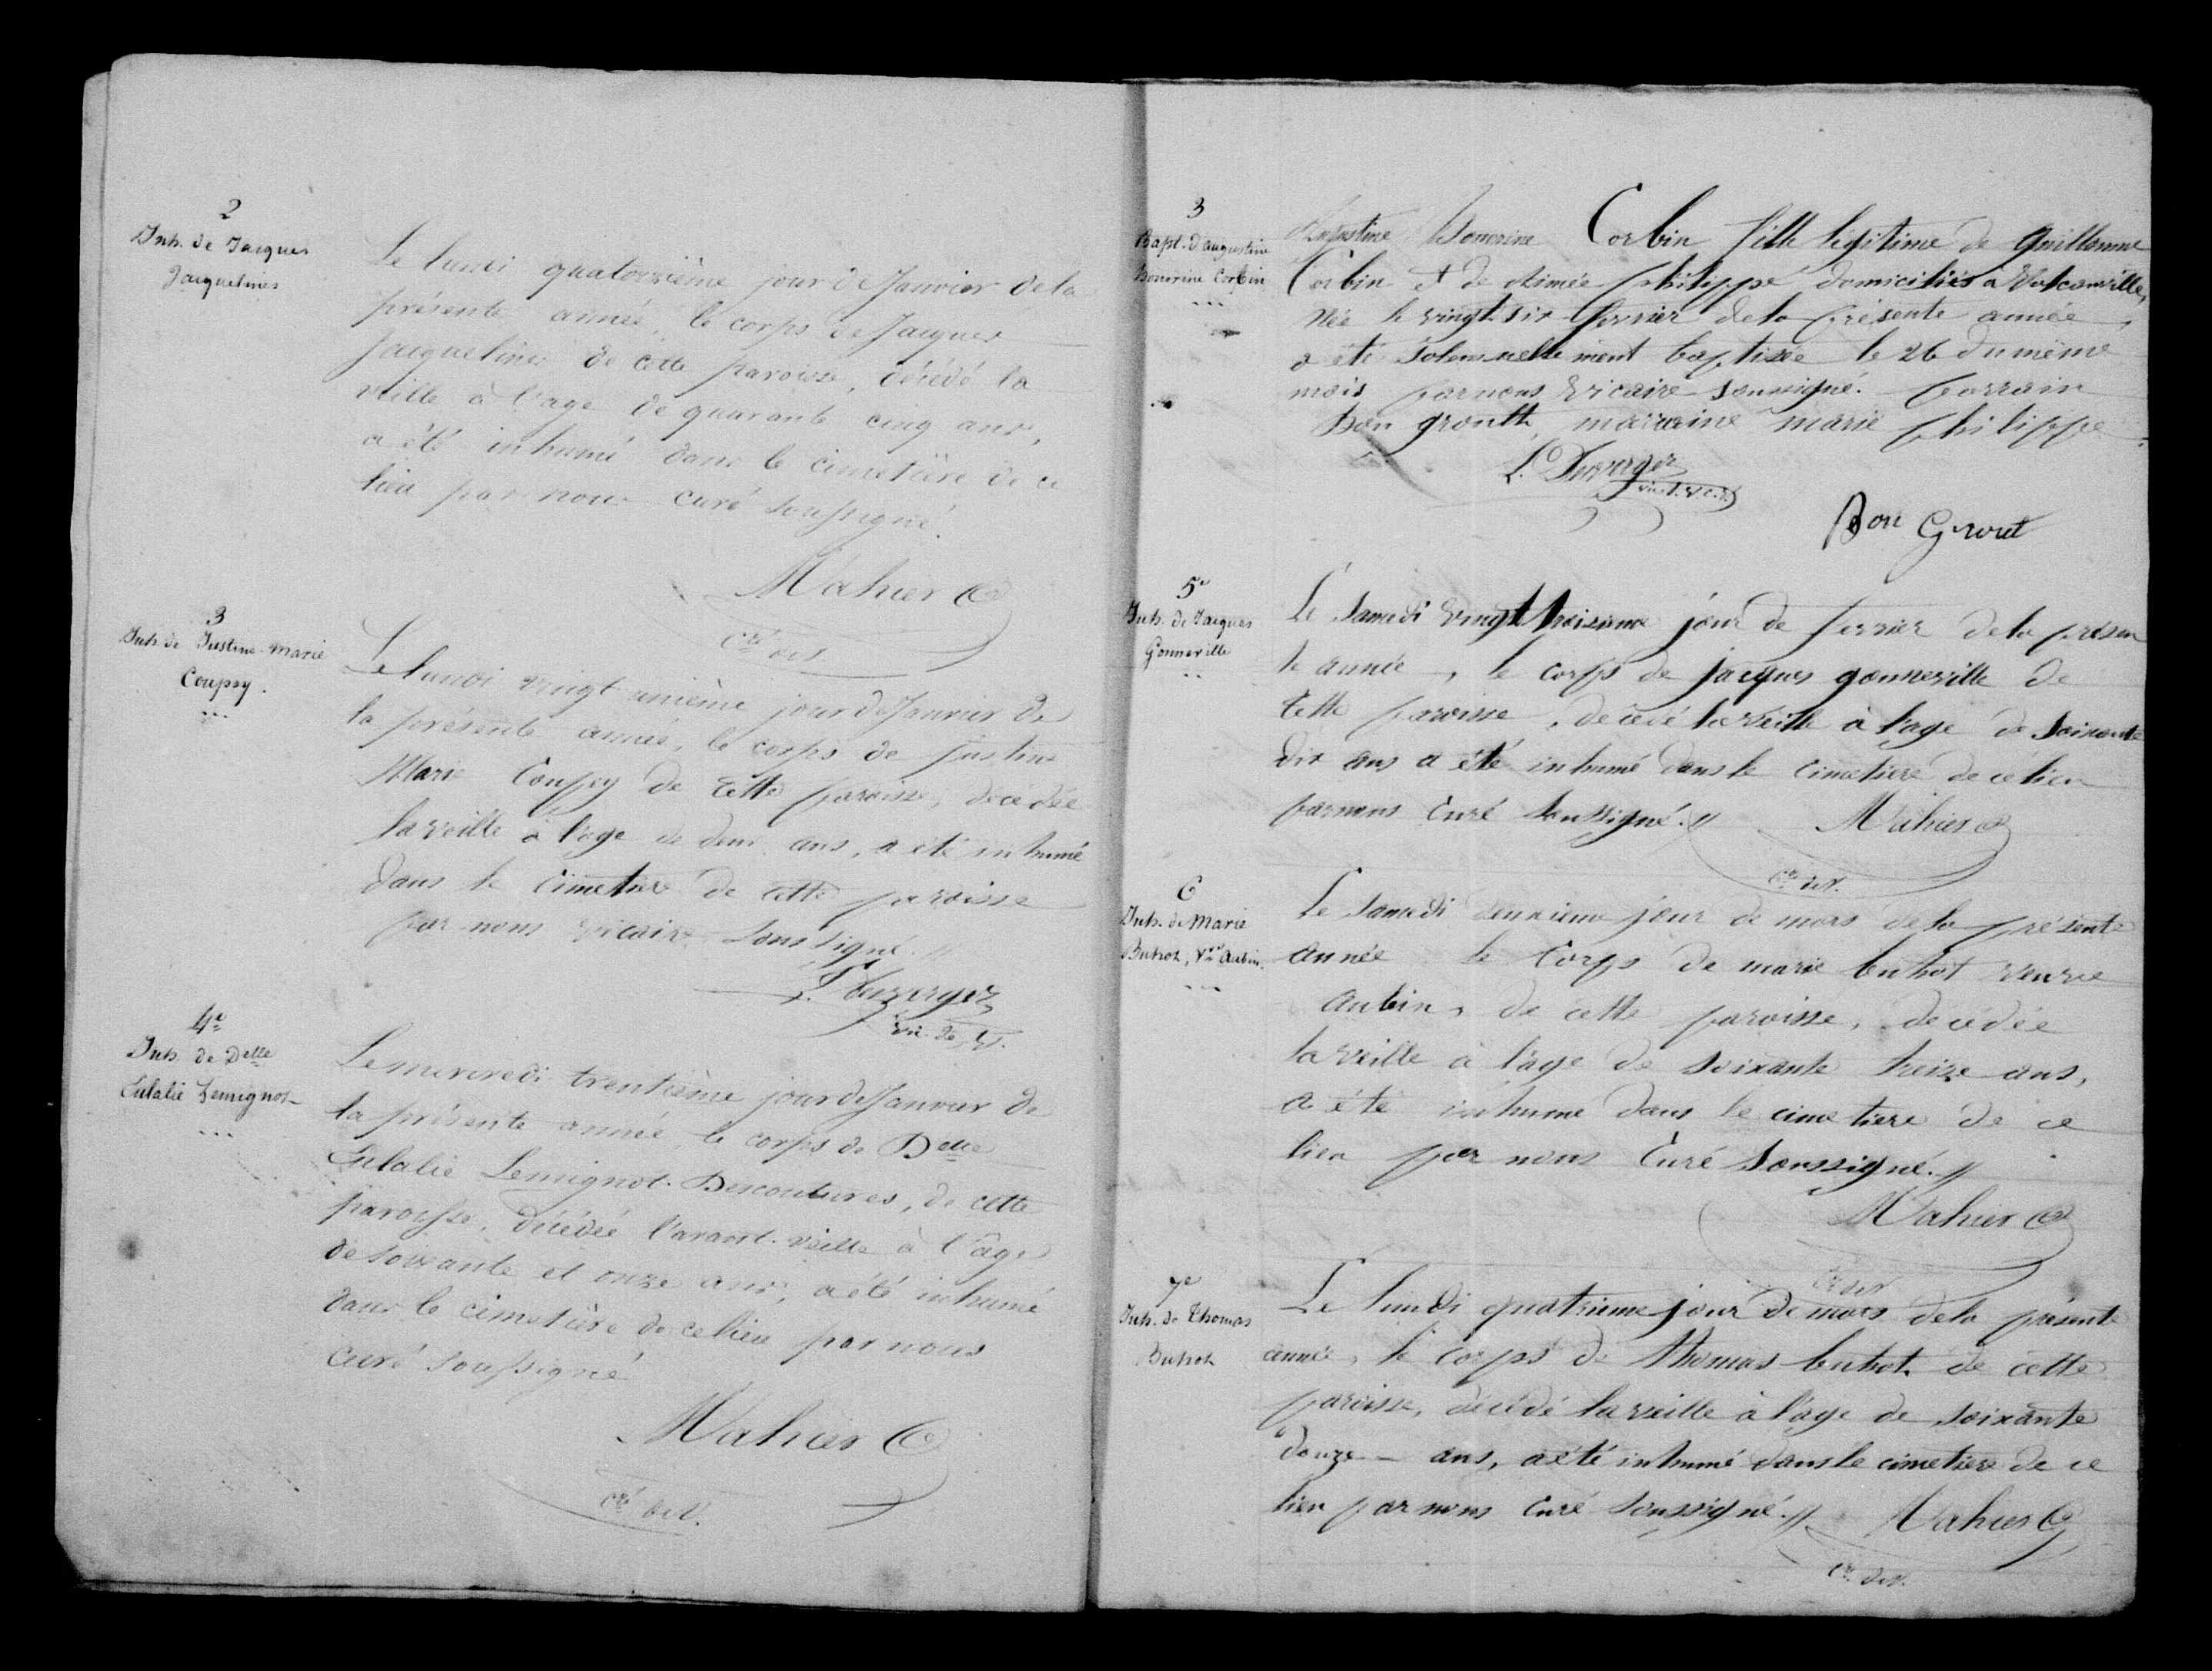 2
Inh. de Jacques
Jacquelines
Le lundi quatorzième jour de Janvier de la
présente année, le corps de Jacques
Jacquelines de cette paroisse, décédé la
veille à l'age de quarante cinq ans,
a été inhumé dans le cimetière de ce
lieu par nous curé soussigné.
Mahier
Cé de V.
3
Inh. de Justine-Marie
Coupey.
Le lundi vingt unième jour de Janvier de
la présente année, le corps de Justine
Marie Coupey de cette paroisse, décédée
la veille à l'age de deux ans, a été inhumé
dans le cimetiere de cette paroisse
par nous vicaire soussigné.
L. Duverger
vic. de V.
4e
Inh. de Delle
Eulalie Lemignot
Le mercredi trentième jour de Janvier de
la présente année, le corps de Delle
Eulalie Lemignot-Descoutures, de cette
paroisse, décédée l'avant-veille à l'âge
de soixante et onze ans, a été inhumé
dans le cimetière de ce lieu par nous
curé soussigné
Mahier
Cé de V.
3
Bapt. d'augustine
honorine Corbin
Augustine honorine Corbin fille légitime de Guillaume
Corbin et de Aimée philippe domiciliés à Valcanville,
née le vingt six fevrier de la présente année,
a été solemnellement baptisée le 26 du même
mois par nous vicaire soussigné. parrain
Bon groult, marraine marie philippe.
L. Duverger
Bon Grout
5e
Inh. de Jacques
Gonneville
Le Samedi vingt troisieme jour de fevrier de la présen
te année, le corps de jacques gonneville de
cette paroisse, décédé la veille à l'age de soixante
dix ans a été inhumé dans le cimetiere de ce lieu
par nous Curé soussigné.
Mahier
Cé de V.
6
Inh. de Marie
Buhot, Vve Aubin.
Le Samedi deuxieme jour de mars de la présente
année le Corps de marie buhot veuve
aubin, de cette paroisse, décédée
la veille à l'age de soixante treize ans,
a été inhumé dans le cimetiere de ce
lieu par nous Curé soussigné.
Mahier
Cé de V.
7e
Inh. de Thomas
Buhot
Le lundi quatrieme jour de mars de la présente
année, le corps de thomas buhot de cette
paroisse, décédé la veille à l'age de soixante
douze ans, a été inhumé dans le cimetiere de ce
lieu par nous Curé soussigné.
Mahier
Cé de V.